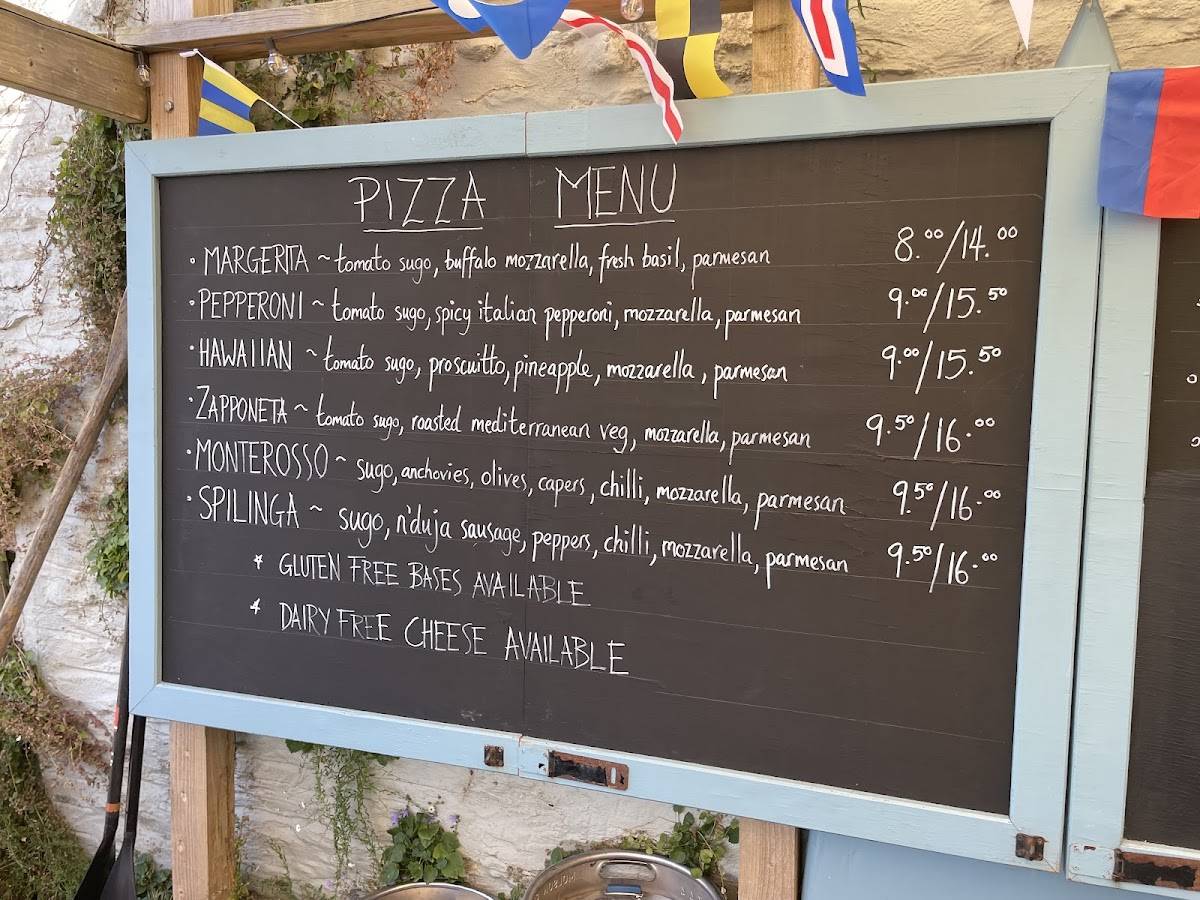 PIZZA MENU
• MARGERITA ~ tomato sugo, buffalo mozzarella, fresh basil, parmesan 8.00/14.00
• PEPPERONI ~ tomato sugo, spicy italian pepperoni, mozzarella, parmesan 9.00/15.50
• HAWAIIAN ~ tomato sugo, proscuitto, pineapple, mozzarella, parmesan 9.00/15.50
• ZAPPONETA ~ tomato sugo, roasted mediterranean veg, mozzarella, parmesan 9.50/16.00
• MONTEROSSO ~ sugo, anchovies, olives, capers, chilli, mozzarella, parmesan 9.50/16.00
• SPILINGA ~ sugo, n'duja sausage, peppers, chilli, mozzarella, parmesan 9.50/16.00
* GLUTEN FREE BASES AVAILABLE
* DAIRY FREE CHEESE AVAILABLE